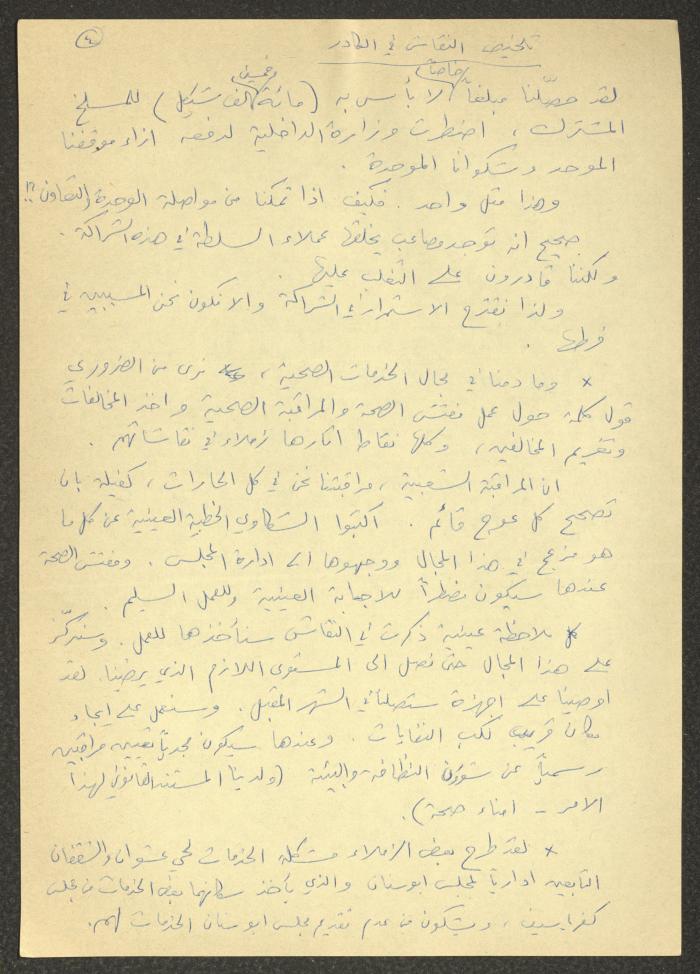 ٤
تلخيص النقاش في الكادر
لقد حصّلنا مبلغاً خاصاً لا بأس به (مائة وخمسين الف شيكل) للمسلخ
المشترك، اضطرت وزارة الداخلية لدفعه ازاء موقفنا
الموحد وشكوانا الموحدة.
وهذا مثل واحد. فكيف اذا تمكنا من مواصلة الوحدة والتعاون؟!!
صحيح انه توجد مصاعب يخلقها عملاء السلطة في هذه الشراكة.
ولكننا قادرون على التغلب عليها.
ولذا نقترح الاستمرار في الشراكة والا نكون نحن المسببين في
فرطها.
× وما دمنا في مجال الخدمات الصحية، نرى من الضروري
قول كلمة حول عمل مفتش الصحة والمراقبة الصحية واخذ المخالفات
وتغريم المخالفين، وكلها نقاط اثارها زملاء في نقاشاتهم.
ان المراقبة الشعبية، مراقبتنا نحن في كل الحارات، كفيلة بان
تصحح كل عوج قائم. اكتبوا الشكاوي الخطية العينية عن كل ما
هو مزعج في هذا المجال ووجهوها الى ادارة المجلس. ومفتش الصحة
عندها سيكون مضطراً للاجابة العينية وللعمل السليم.
كل ملاحظة عينية ذكرت في النقاش سنأخذها للعمل. وسنركّز
على هذا المجال حتى نصل الى المستوى اللازم الذي يرضينا. لقد
اوصينا على اجهزة ستصلنا في الشهر المقبل. وسنعمل على ايجاد
مكان قريب لكب النفايات. وعندها سيكون مجدياً تعيين مراقبين
رسمياً عن شؤون النظافة والبيئة (ولدينا المستند القانوني لهذا
الامر - امناء صحة).
× لقد طرح بعض الزملاء مشكلة الخدمات لحي عشوان والشقفان
التابعين ادارياً لمجلس ابوسنان والذي يأخذ سكانهما بعض الخدمات من مجلس
كفرياسيف، ويشكون من عدم تقديم مجلس ابوسنان الخدمات لهم.